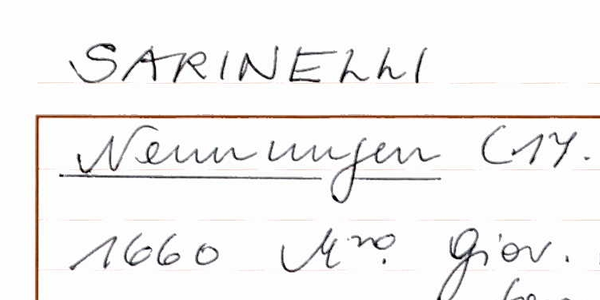 SARINELLI
Nennungen (17.
1660 Mro. Giov.